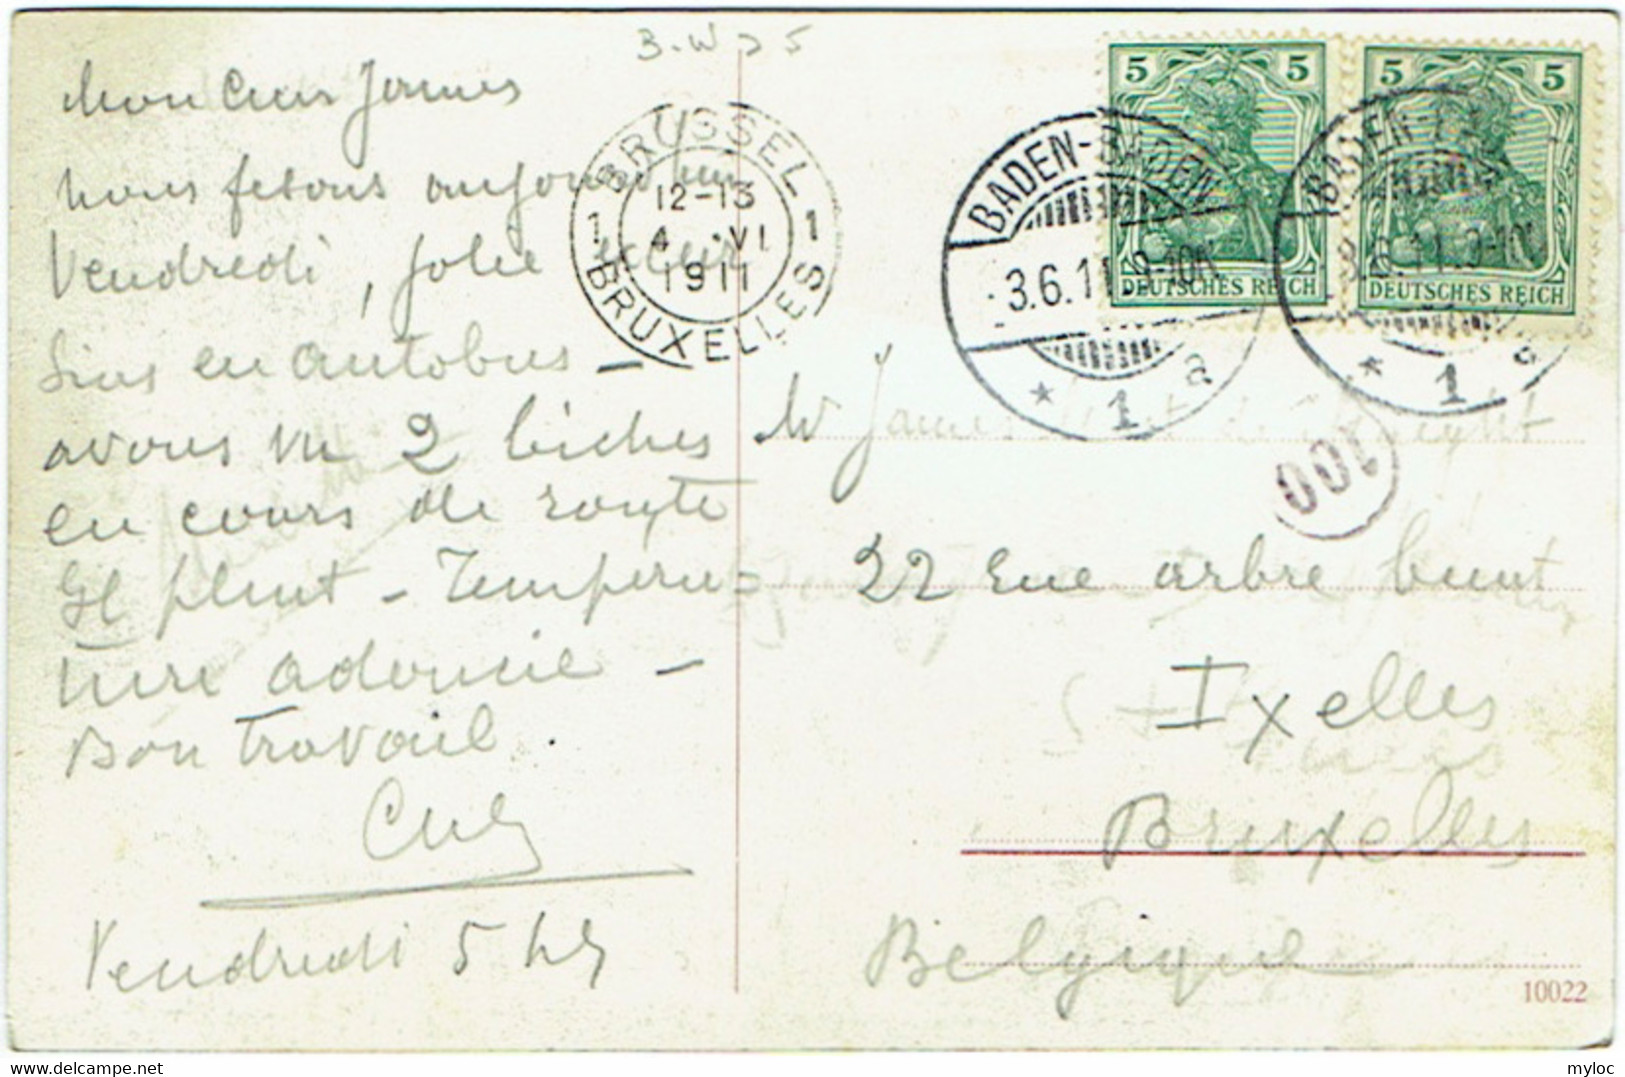 B.W > 5
Mon Cher James
nous fesons aujourd'hui
Vendredi, jolie
en autobus —
avons vu 2 biches
en cours de route
Il pleut - Tempera=
ture adoucie —
Bon travail.
Vendredi 5 h
BRUSSEL
1 12-13 1
4 ·VI
1911
BRUXELLES
BADEN-BADEN
·3.6.11.9-10N.
* 1 a
BADEN-BA
3.6.11.9-10N.
* 1 a
5 5
DEUTSCHES REICH
5 5
DEUTSCHES REICH
100
James
22 Rue arbre bénit
Ixelles
Bruxelles
Belgique
10022
delcampe.net
myloc